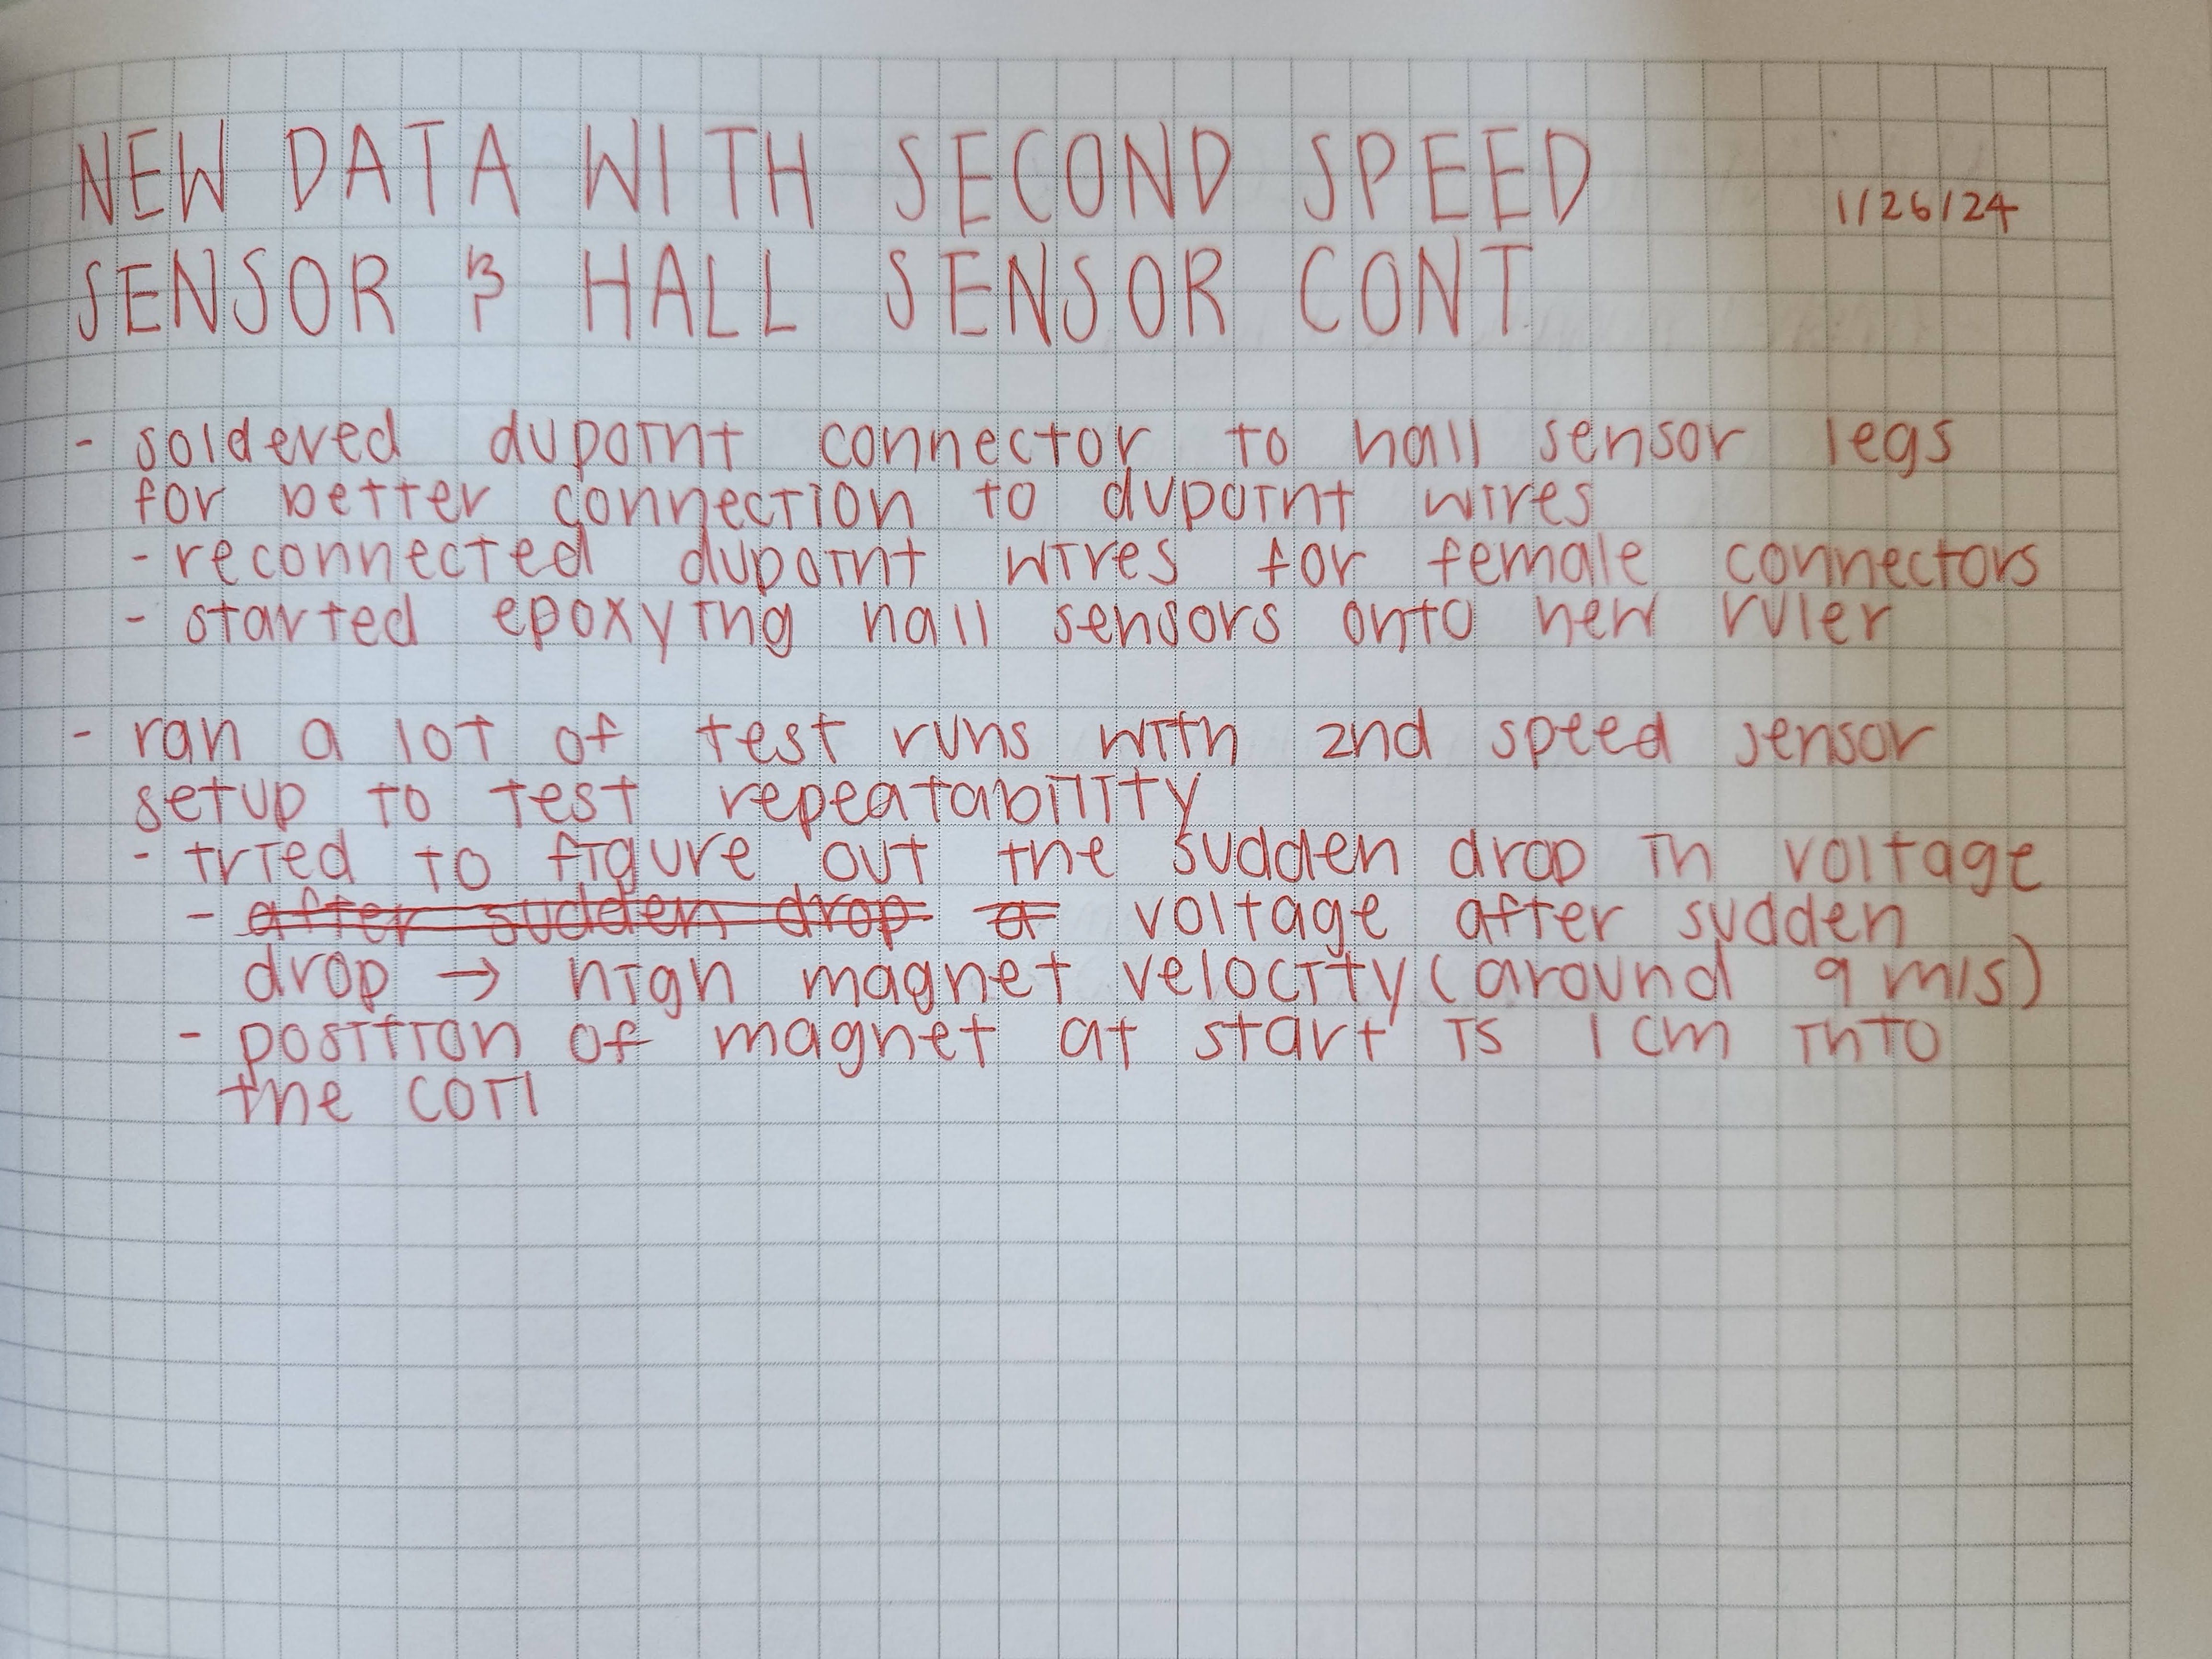 NEW DATA WITH SECOND SPEED
1/26/24
SENSOR & HALL SENSOR CONT
- soldered dupoint connector to hall sensor legs
for better connection to dupoint wires
- reconnected dupoint wires for female connectors
- started epoxying hall sensors onto new ruler
- ran a lot of test runs with 2nd speed sensor
setup to test repeatability
- tried to figure out the sudden drop in voltage
- after sudden drop a voltage after sudden
drop → high magnet velocity (around 9 m/s)
- position of magnet at start is 1 cm into
the coil